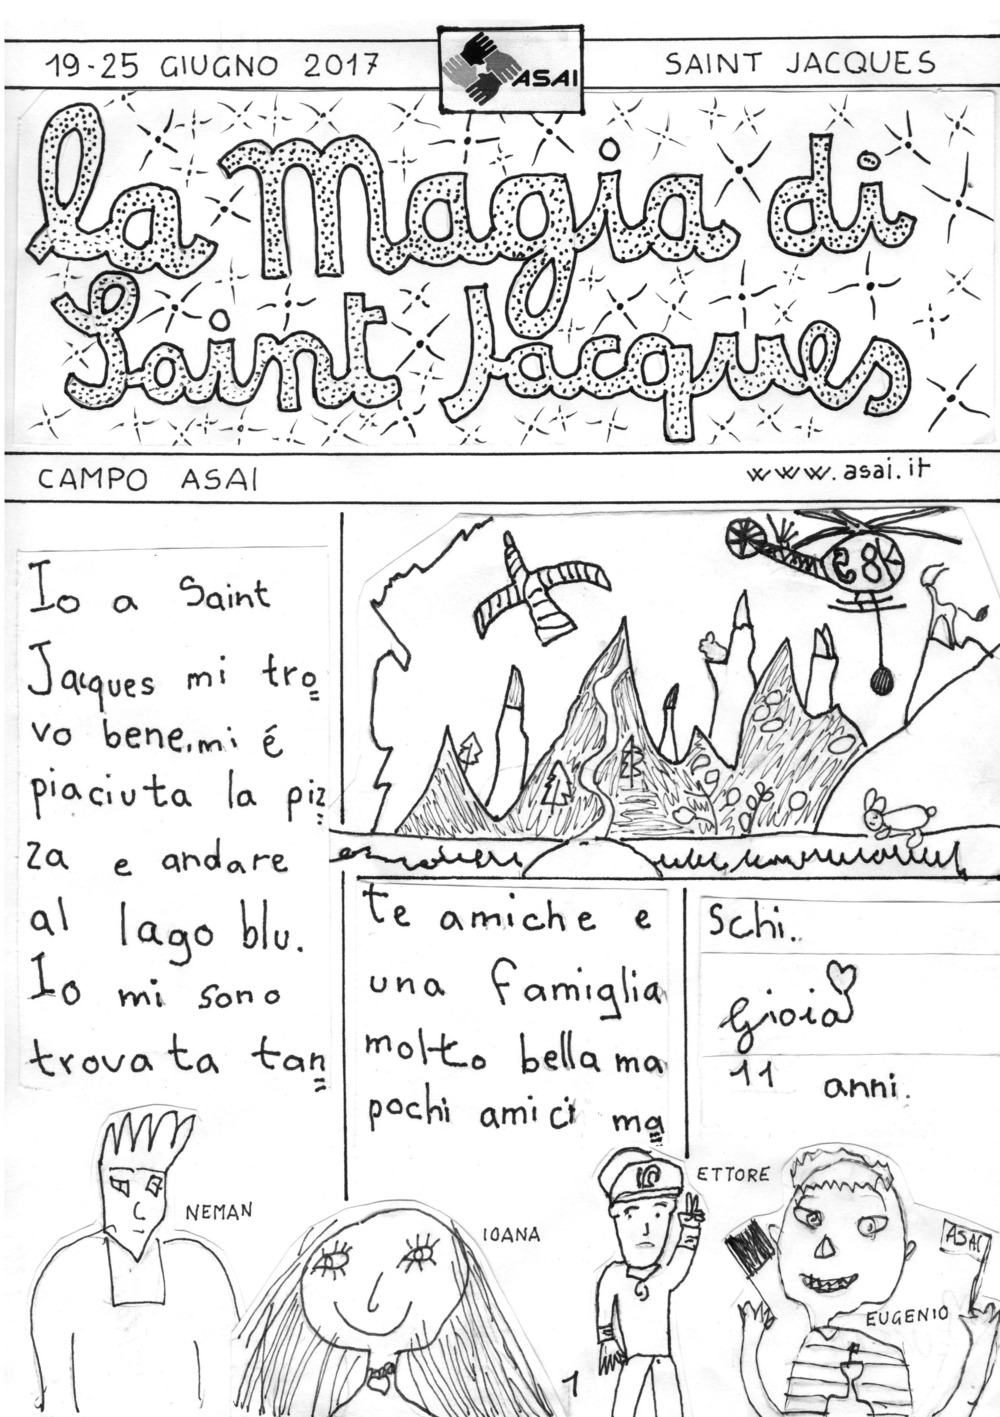 19-25 GIUGNO 2017
ASAI
SAINT JACQUES
la Magia di
Saint Jacques
CAMPO ASAI
www.asai.it
Io a Saint
Jacques mi tro
vo bene.mi é
piaciuta la piz
za e andare
al lago blu.
Io mi sono
trovata tan
te amiche e
una famiglia
molto bella ma
pochi amici ma
schi..
Gioia
11 anni.
NEMAN
IOANA
ETTORE
ASAI
EUGENIO
1